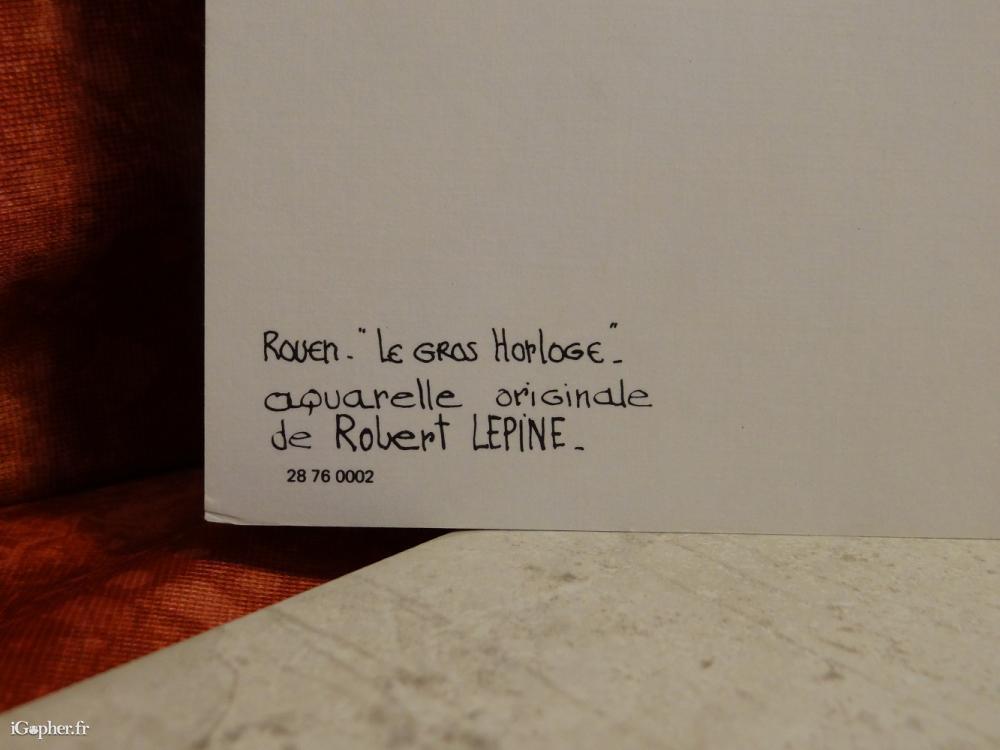 Rouen. "Le Gros Horloge".
aquarelle originale
de Robert LEPINE.
28 76 0002
iGopher.fr